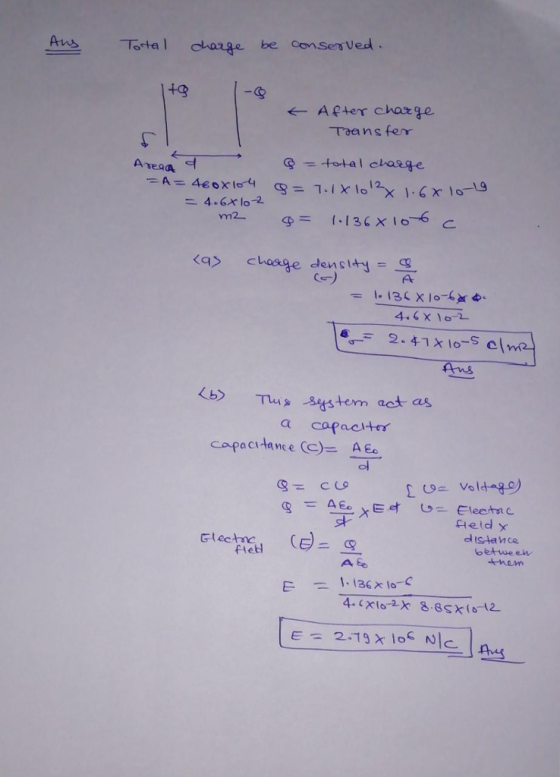 Ans Total charge be conserved.
+Q -Q
← After charge
Transfer
Area d
= A = 460×10-4
= 4.6×10-2
m2
Q = total charge
Q = 7.1×10^12 × 1.6×10^-19
Q = 1.136×10^-6 C
<a> charge density = Q/A
(σ)
= 1.136×10-6 / 4.6×10-2
σ = 2.47×10-5 C/m2
Ans
<b> This system act as
a capacitor
capacitance (C) = Aε₀/d
Q = CV [V = Voltage)
Q = Aε₀/d × Ed V = Electric
field ×
distance
between
them
Electric
field (E) = Q/Aε₀
E = 1.136×10-6 / 4.6×10-2 × 8.85×10-12
E = 2.79×10^6 N/C Ans